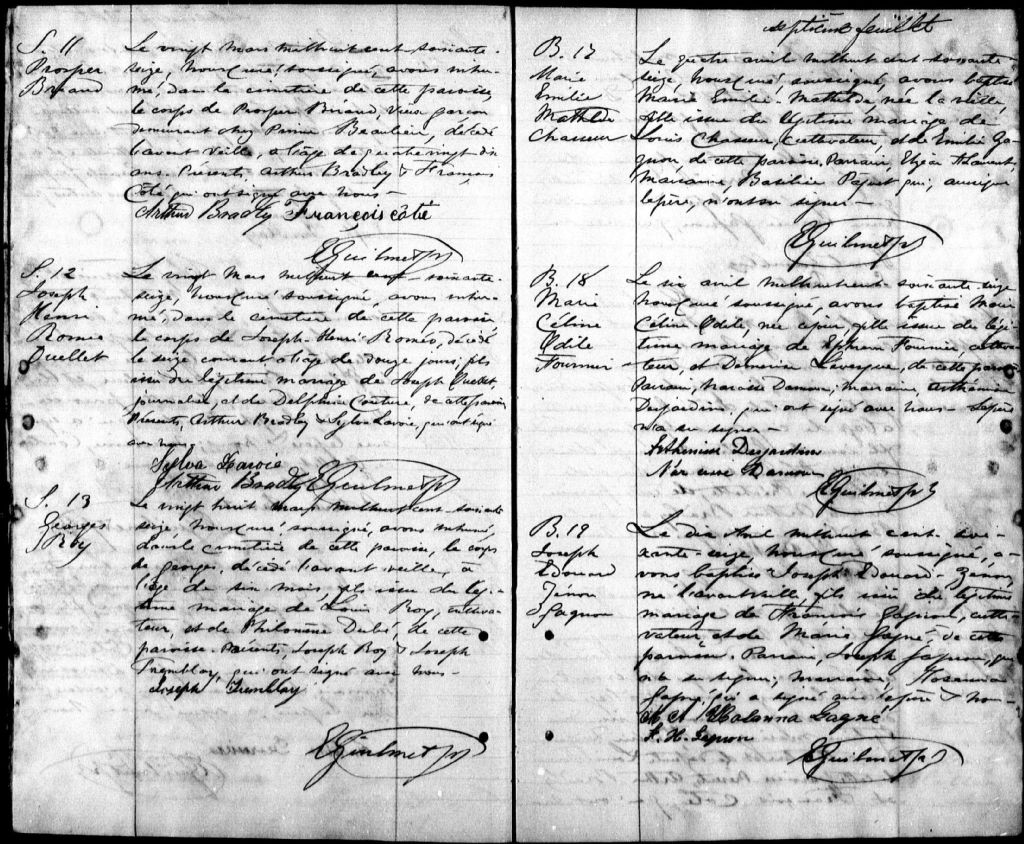 S. 11
Prosper
Briand
Le vingt Mars mil huit cent soixante-
seize, nous curé soussigné, avons inhu-
mé, dans le cimetière de cette paroisse,
le corps de Prosper Briand, vieux garçon
demeurant chez Beaulieu, décédé
l'avant veille, à l'âge de quatre vingt dix
ans. Présents, Arthur Bradley & François
Côté qui ont signé avec nous—
Arthur Bradley François côté
E Guilmet ptr
S. 12
Joseph
Henri
Roméo
Ouellet
Le vingt Mars mil huit cent soixante-
seize, nous curé soussigné, avons inhu-
mé, dans le cimetière de cette paroisse
le corps de Joseph-Henri Roméo, décédé
le seize courant à l'âge de douze jours, fils
issu du légitime mariage de Joseph Ouellet,
journalier, et de Delphine Couture, de cette paroisse
Présents, Arthur Bradley & Sylva Lavoie, qui ont signé
avec nous.
Sylva Lavoie
Arthur Bradley E Guilmet ptr
S. 13
Georges
Roy
Le vingt huit Mars mil huit cent soixante
seize nous curé soussigné, avons inhumé,
dans le cimetière de cette paroisse, le corps
de Georges, décédé l'avant veille, à
l'âge de six mois, fils issu du légi-
time mariage de Louis Roy, cultiva-
teur, et de Philomène Dubé, de cette
paroisse. Présents, Joseph Roy & Joseph
Tremblay, qui ont signé avec nous-
Joseph Tremblay
E Guilmet ptr
septième feuillet
B. 17
Marie
Emilie
Mathilde
Chasseur
Le quatre avril mil huit cent soixante
seize, nous curé soussigné, avons baptisé
Marie Emilie-Mathilde née la veille,
fille issue du légitime mariage de
Louis Chasseur, cultivateur, et de Emilie Ga-
gnon, de cette paroisse, Parrain,
Marraine, Basilice Paquet qui, ainsi que
le père, n'ont su signer—
E Guilmet ptr
B. 18
Marie
Céline
Odile
Fournier
Le six avril mil huit cent-soixante-seize
nous curé soussigné, avons baptisé Marie
Céline-Odile, née ce jour, fille issue du légi-
time mariage de Ephrem Fournier, cultiva-
teur, et Démerise Levesque, de cette paroisse
Parrain, Narcisse Damour; marraine Arthémise
Desjardins, qui ont signé avec nous- Le père
n'a su signer—
Arthémise Desjardins
Narcisse Damour
E Guilmet ptr
B. 19
Joseph
Edouard
Zénon
Gagnon
Le dix Avril mil huit cent soi-
xante-seize, nous curé soussigné, a-
vons baptisé Joseph Edouard-Zénon,
né l'avant veille, fils issu du légitime
mariage de François Gagnon, culti-
vateur et de Marie Gagné, de cette
paroisse. Parrain, Joseph Gagnon, qui
n'a su signer; marraine, Rosanna
Gagné, qui a signé avec le père & nous-
Gagné
F. H. Gagnon
E Guilmet ptr